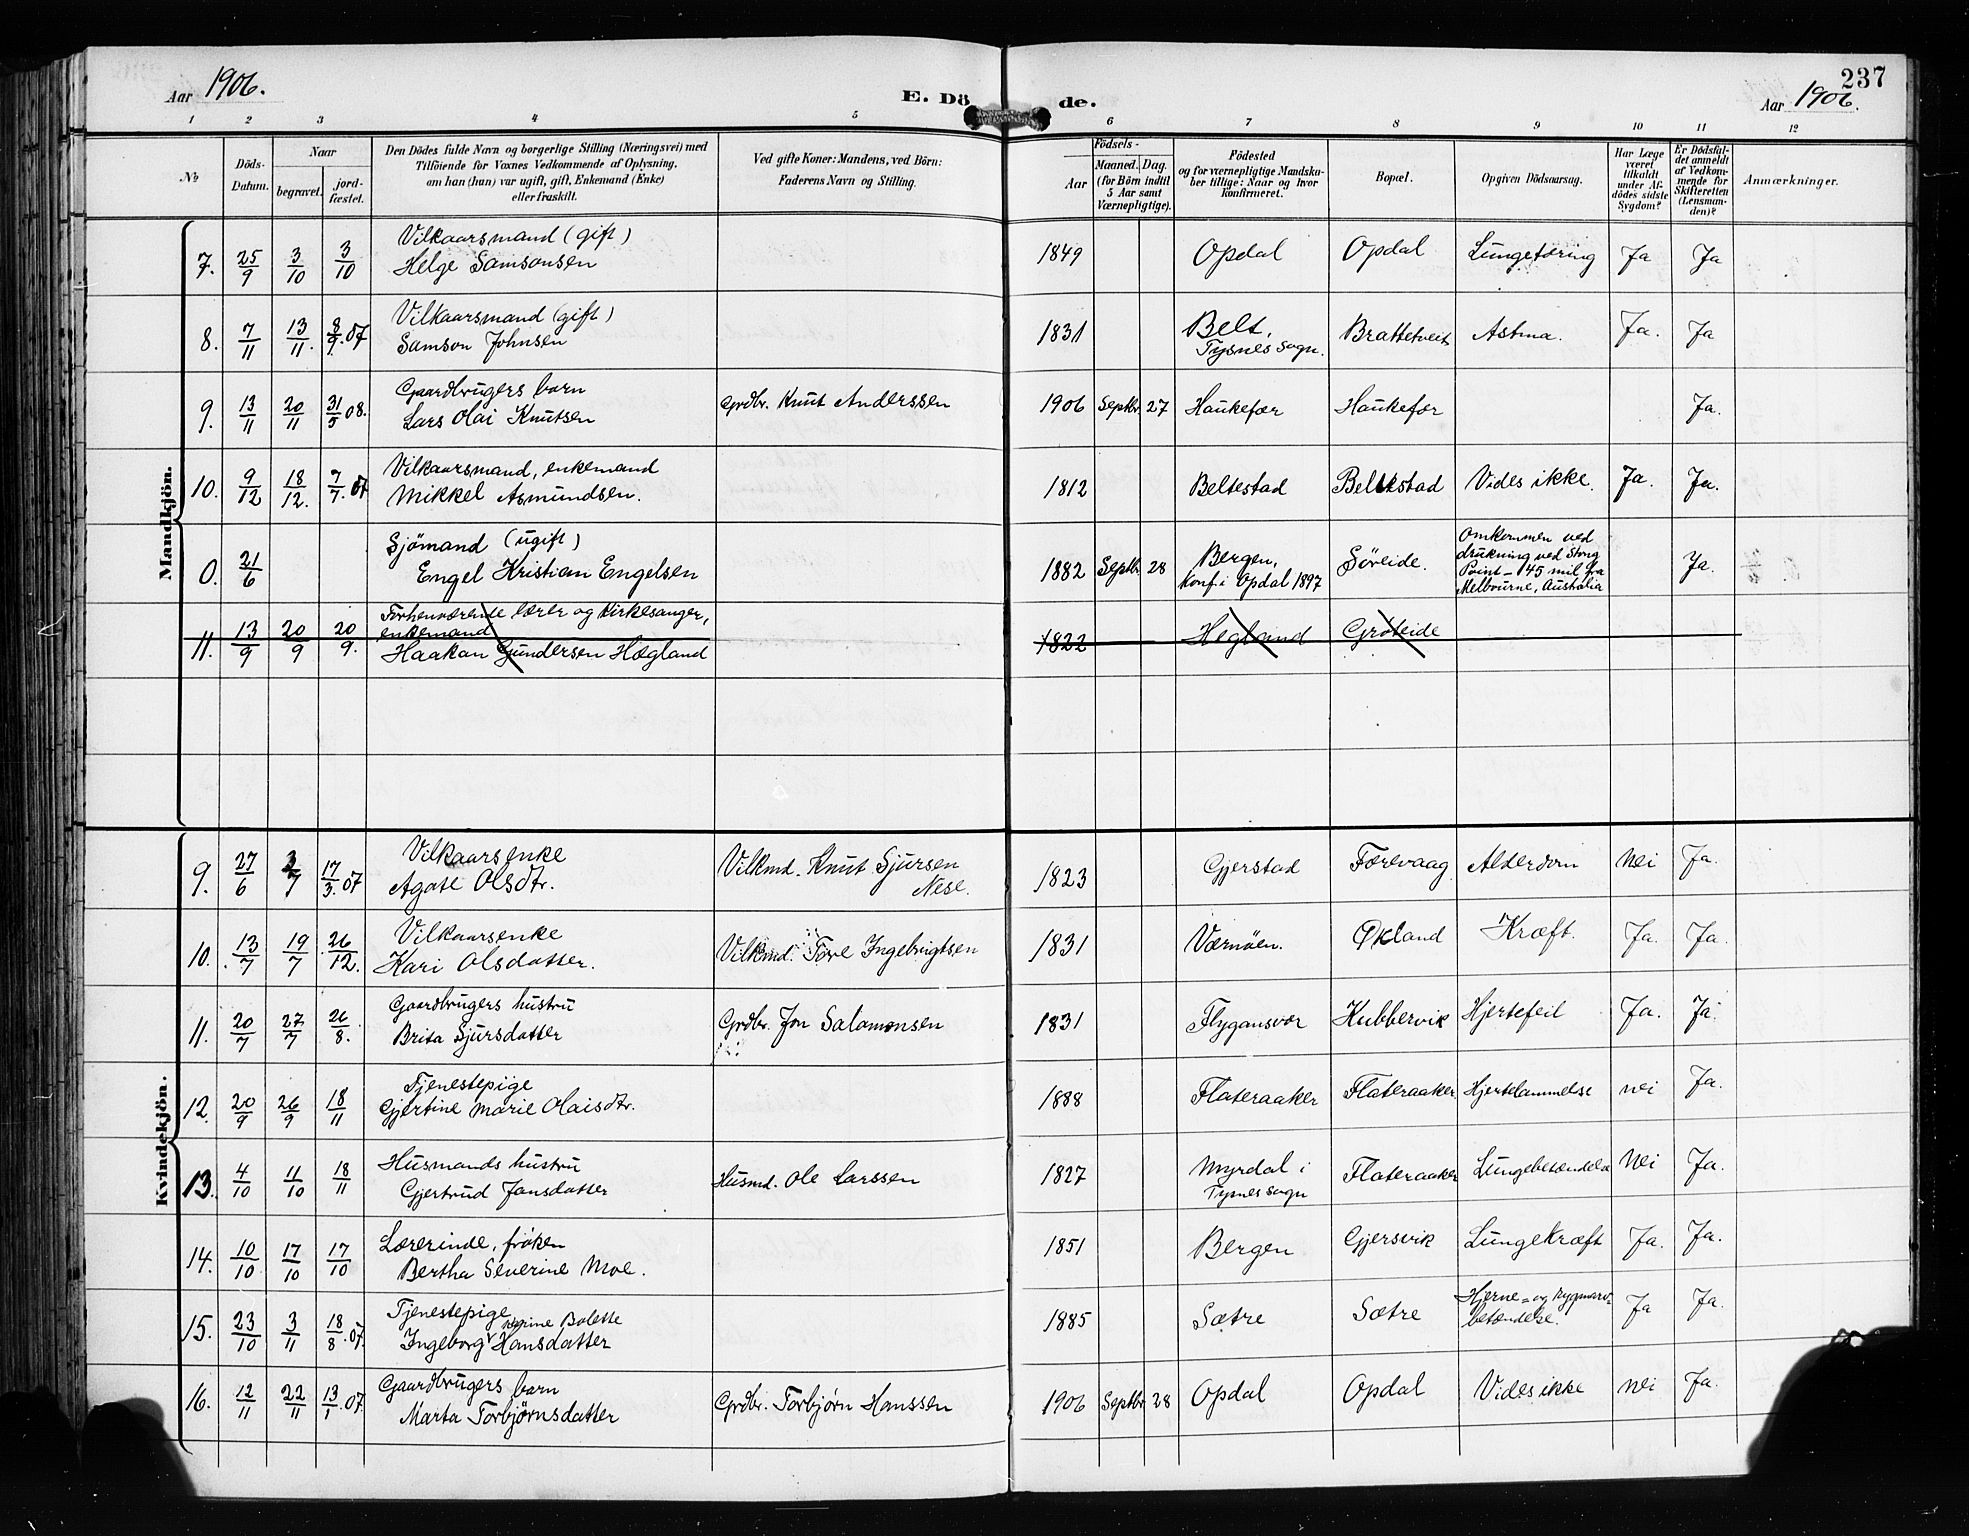 237
Aar 1906.
E. Döde.
Aar 1906.
1 2 3 4 5 6 7 8 9 10 11 12
№
Döds-Datum.
Naar
begravet.
jord-fæstet.
Den Dödes fulde Navn og borgerlige Stilling (Næringsvei) med
Tilföiende for Voxnes Vedkommende af Oplysning,
om han (hun) var ugift, gift, Enkemand (Enke)
eller fraskilt.
Ved gifte Koner: Mandens, ved Börn:
Faderens Navn og Stilling.
Födsels-
Aar
Maaned. Dag.
(for Börn indtil
5 Aar samt
Værnepligtige).
Födested
og for værnepligtige Mandska-
ber tillige: Naar og hvor
konfirmeret.
Bopæl.
Opgiven Dödsaarsag.
Har Læge
været
tilkaldt
under Af-
dödes sidste
Sygdom?
Er Dödsfal-
det anmeldt
af Vedkom-
mende for
Skifteretten
(Lensman-
den)?
Anmærkninger.
Mandkjön.
7. 25/9 3/10 3/10 Vilkaarsmand (gift)
Helge Samsonsen 1849 Opdal Opdal Lungetæring Ja Ja
8. 7/11 13/11. 8/9. 07 Vilkaarsmand (gift)
Samson Johnsen 1831 Belt,
Tysnes sogn. Brattetveit Astma. Ja. Ja
9. 13/11 20/11 31/5 08. Gaardbrugers barn
Lars Olai Knutsen Grdbr. Knut Anderssen 1906 Septbr. 27 Haukefær Haukefær Ja.
10. 9/12 18/12. 7/7. 07 Vilkaarsmand, enkemand
Mikkel Asmundsen. 1812 Beltestad Beltestad Vides ikke. Ja. Ja.
0. 21/6 Sjömand (ugift)
Engel Kristian Engelsen 1882 Septbr. 28 Bergen,
Konf. i Opdal 1897 Söreide. Omkommen ved
drukning ved Stony
Point - 145 mil fra
Melbourne, Australia Ja.
11. 13/9 20/9 20/9. Forhenværende lærer og kirkesanger,
enkemand
Haakan Gundersen Hægland 1822 Hegland Gröteide
Kvindekjön.
9. 27/6 /7 17/3. 07 Vilkaarsenke
Agate Olsdtr. Vilkmd. Knut Sjursen
Nese. 1823 Gjerstad Færevaag Alderdom Nei Ja.
10. 13/7 19/7 26/12. Vilkaarsenke
Kari Olsdatter. Vilkmd. Tore Ingebrigtsen 1831 Værnöen. Økland Kræft. Ja. Ja.
11. 20/7 27/7 26/8. Gaardbrugers hustru
Brita Sjursdatter Grdbr. Jon Salamonsen 1831 Flygansvær Kubbervik Hjertefeil Ja. Ja.
12. 20/9 26/9 18/11 Tjenestepige
Gjertine Marie Olaisdtr. 1888 Flateraaker Flateraaker Hjertelammelse nei Ja.
13. 4/10 11/10 18/11 Husmands hustru
Gjertrud Jansdatter Husmd. Ole Larssen 1827 Myrdal i
Tysnes sogn Flateraaker Lungebetændelse Nei Ja.
14. 10/10 17/10 17/10 Lærerinde, fröken
Bertha Severine Moe. 1851 Bergen Gjersvik Lungekræft Ja. Ja.
15. 23/10 3/11 18/8. 07 Tjenestepige
Bolette
Ingeborg Hansdatter 1885 Sætre Sætre Hjerne- og rygmarvs
betændelse. Ja Ja.
16. 12/11 22/11 13/1. 07. Gaardbrugers barn
Marta Torbjørnsdatter Grdbr. Torbjørn Hanssen 1906 Septbr. 28 Opdal Opdal Vides ikke nei Ja.